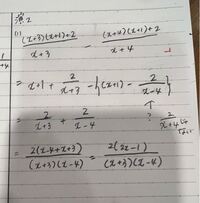 演2
(1) ((x+3)(x+1)+2)/(x+3) - ((x+4)(x+1)+2)/(x+4)
= x+1 + 2/(x+3) - {(x+1) - 2/(x-4)}
↑
? 2/(x+4)
= 2/(x+3) + 2/(x-4)
= 2(x-4+x+3)/((x+3)(x-4)) = 2(2x-1)/((x+3)(x-4))